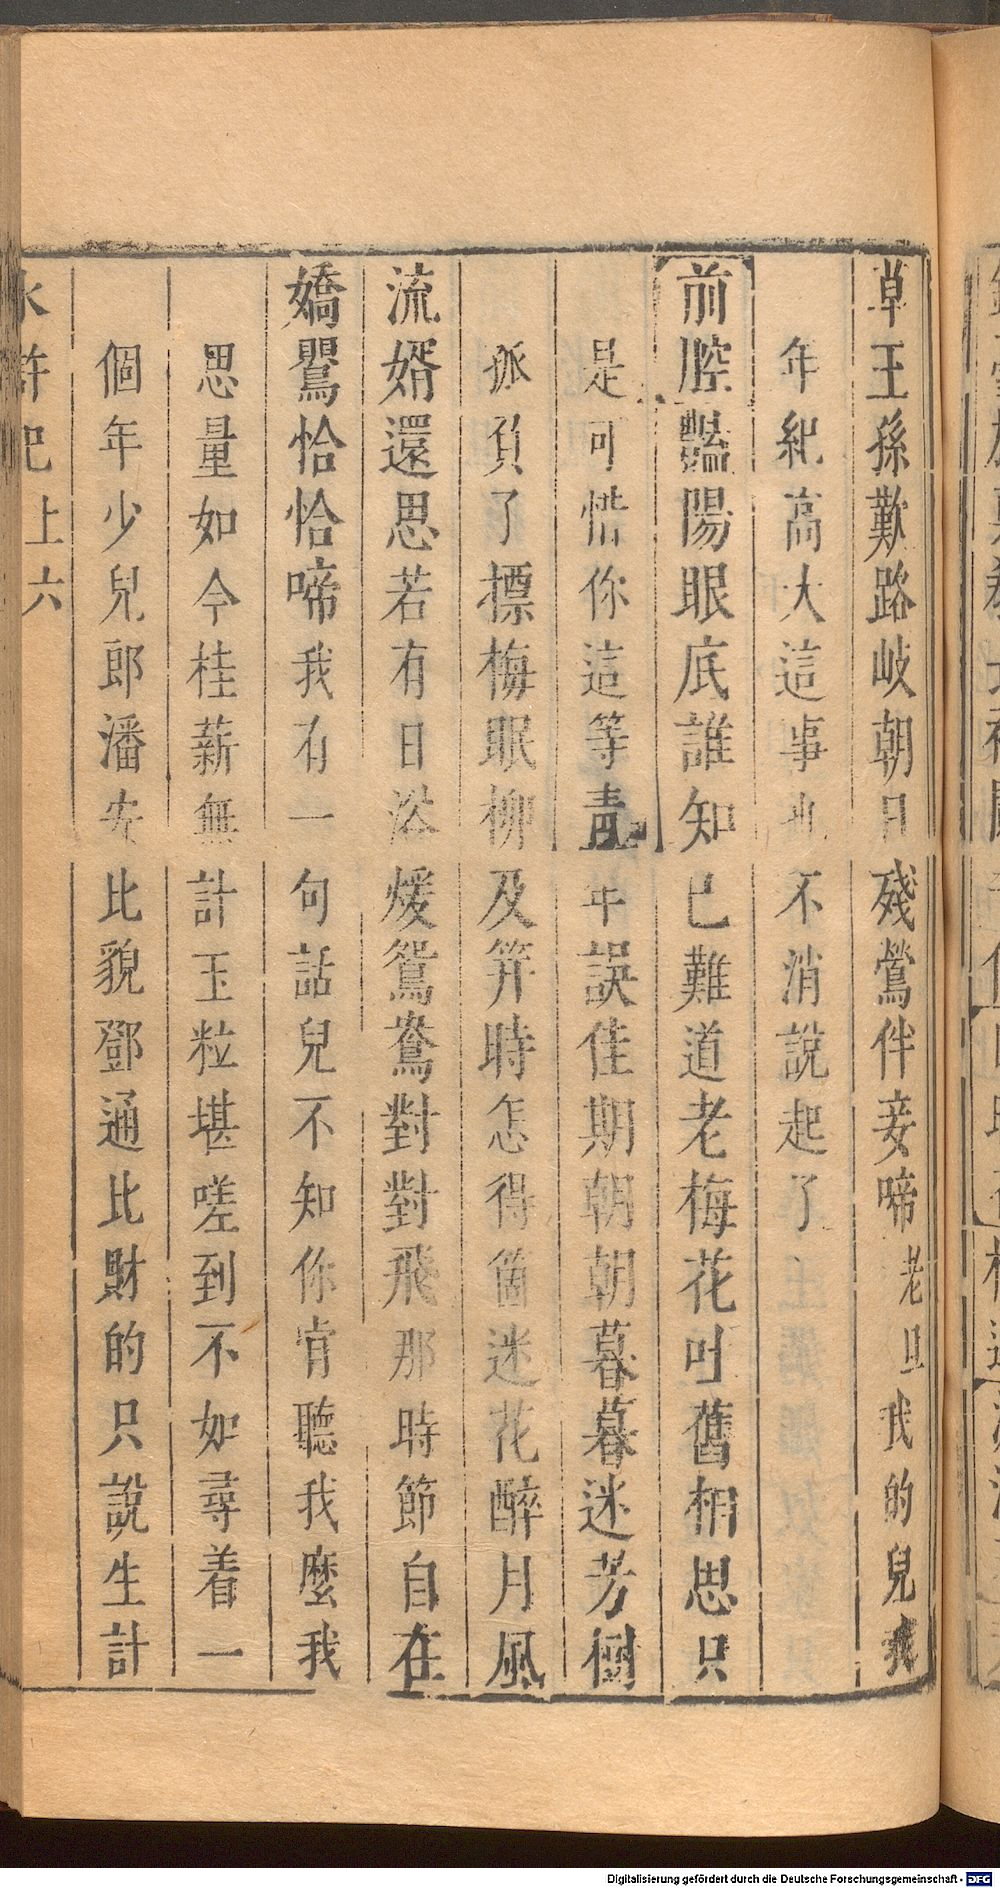 草王孫歎路岐朝日殘鶯伴妾啼老旦我的兒我
年紀高大這事也不消說起了
前腔豔陽眼底誰知已難道老梅花吐舊相思只
是可惜你這等青年誤佳期朝朝暮暮迷芳樹
孤負了摽梅眠柳及笄時怎得箇迷花醉月風
流婿還思若有日浴煖鴛鴦對對飛那時節自在
嬌鸎恰恰啼我有一句話兒不知你肯聽我麼我
思量如今桂薪無計玉粒堪嗟到不如尋着一
個年少兒郎潘安比貌鄧通比財的只說生計
水滸記 上 六
Digitalisierung gefördert durch die Deutsche Forschungsgemeinschaft - DFG